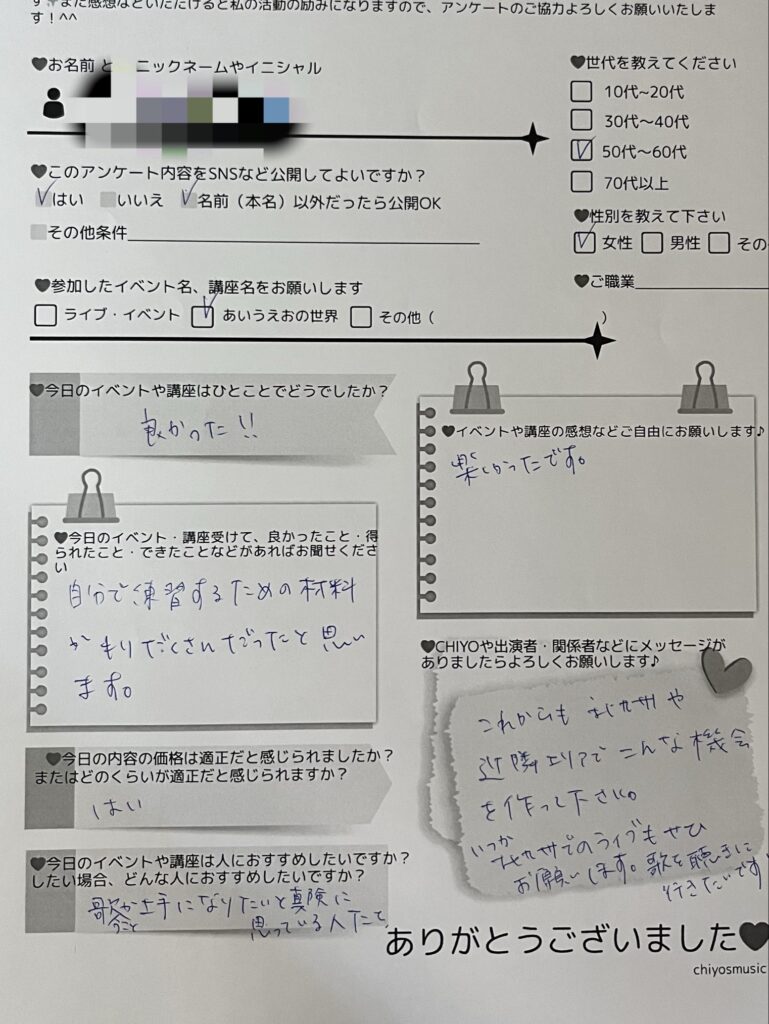 す　また感想などいただけると私の活動の励みになりますので、アンケートのご協力よろしくお願いいたしま
す！^^
♥お名前 と　ニックネームやイニシャル
♥このアンケート内容をSNSなど公開してよいですか？
はい　いいえ　名前（本名）以外だったら公開OK
その他条件
♥世代を教えてください
10代~20代
30代〜40代
50代~60代
70代以上
♥性別を教えて下さい
女性　男性　その
♥ご職業
♥参加したイベント名、講座名をお願いします
ライブ・イベント　あいうえおの世界　その他（　）
♥今日のイベントや講座はひとことでどうでしたか？
良かった!!
♥今日のイベント・講座受けて、良かったこと・得
られたこと・できたことなどがあればお聞せくださ
い
自分で練習するための材料
がもりだくさんだったと思い
ます。
♥今日の内容の価格は適正だと感じられましたか？
またはどのくらいが適正だと感じられますか？
はい
♥今日のイベントや講座は人におすすめしたいですか？
したい場合、どんな人におすすめしたいですか？
歌が上手になりたいと真険に
うこと
思っている人たち
♥イベントや講座の感想などご自由にお願いします♪
楽しかったです。
♥CHIYOや出演者・関係者などにメッセージが
ありましたらよろしくお願いします♪
これからも北九州や
近隣エリアでこんな機会
を作って下さい。
いつか
北九州でのライブもぜひ
お願いします。歌を聴きに
行きたいです
ありがとうございました♥
chiyosmusic